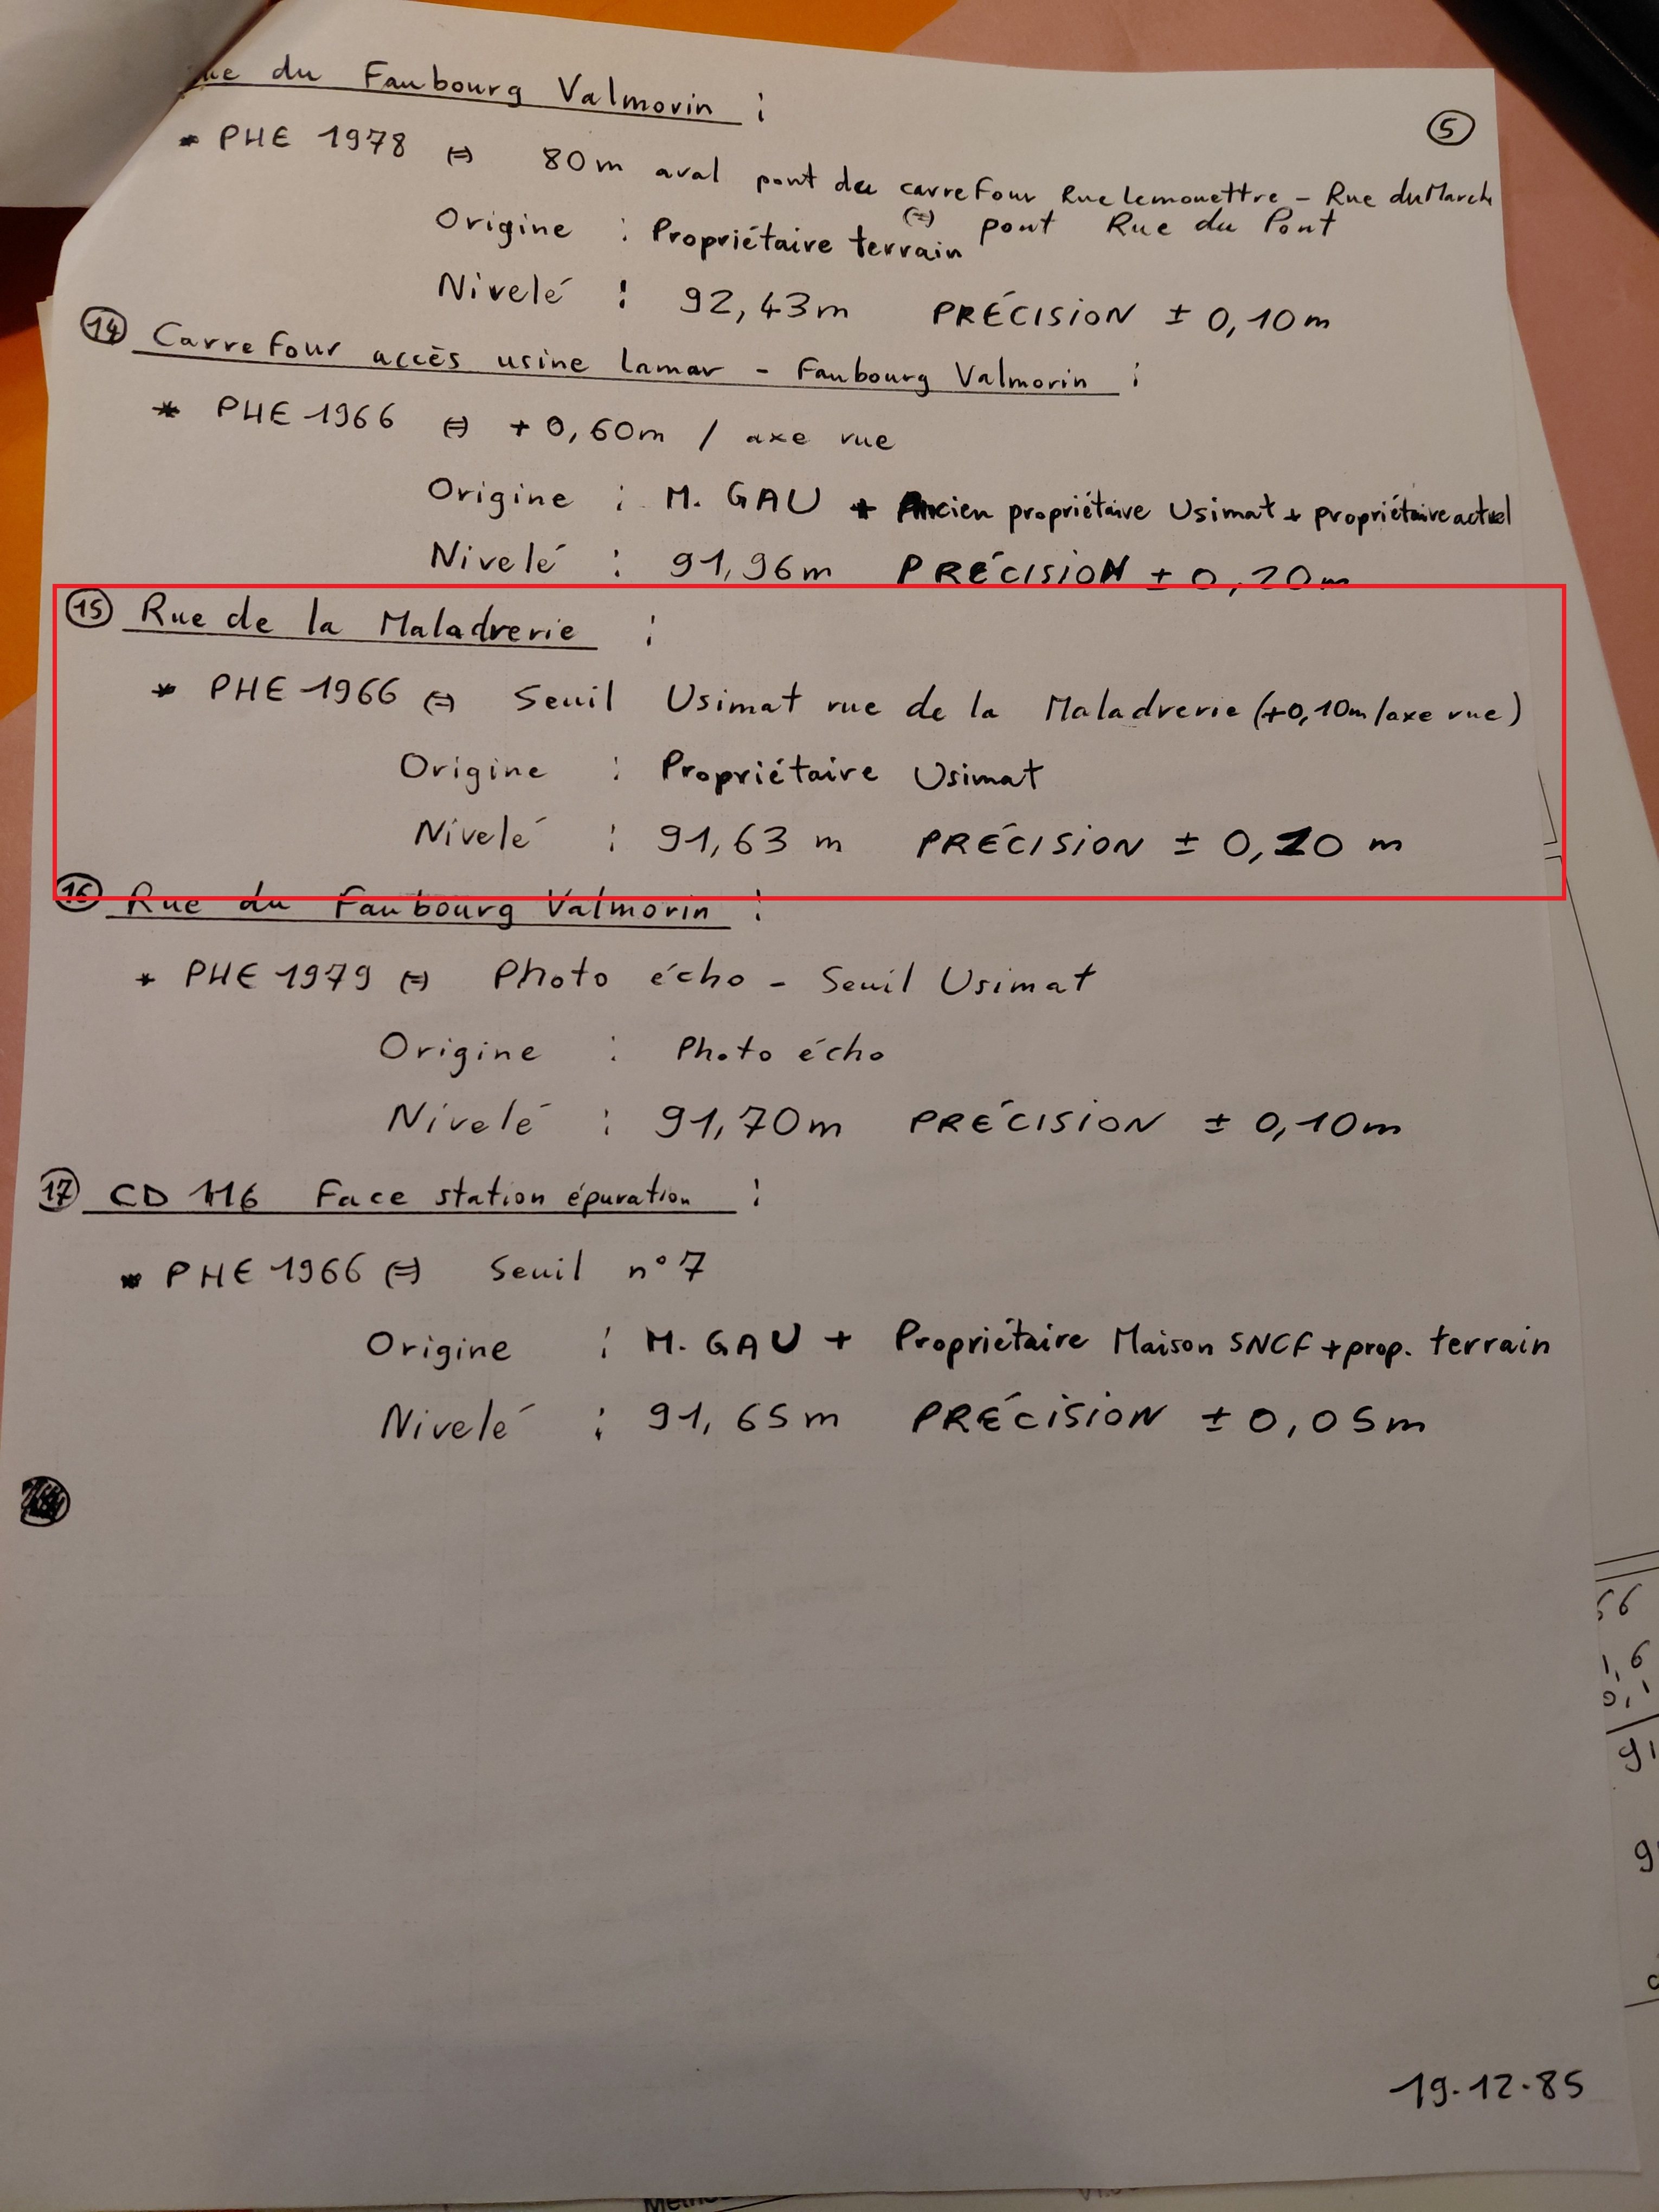 du Faubourg Valmorin :
5
* PHE 1978 (=) 80m aval pont du carrefour Rue Lemouettre - Rue du March
(=) pont Rue du Pont
Origine : Propriétaire terrain
Nivelé : 92,43m PRÉCISION ± 0,10m
14 Carrefour accès usine Lamar - Faubourg Valmorin :
* PHE 1966 (=) + 0,60m / axe rue
Origine : M. GAU + Ancien propriétaire Usimat + propriétaire actuel
Nivelé : 91,96m PRÉCISION ± 0,20m
15 Rue de la Maladrerie :
* PHE 1966 (=) Seuil Usimat rue de la Maladrerie (+0,10m/axe rue)
Origine : Propriétaire Usimat
Nivelé : 91,63 m PRÉCISION ± 0,20 m
16 Rue du Faubourg Valmorin :
* PHE 1979 (=) Photo écho - Seuil Usimat
Origine : Photo écho
Nivelé : 91,70m PRÉCISION ± 0,10m
17 CD 116 Face station épuration :
* PHE 1966 (=) Seuil n°7
Origine : M. GAU + Propriétaire Maison SNCF + prop. terrain
Nivelé : 91,65m PRÉCISION ± 0,05m
19.12.85